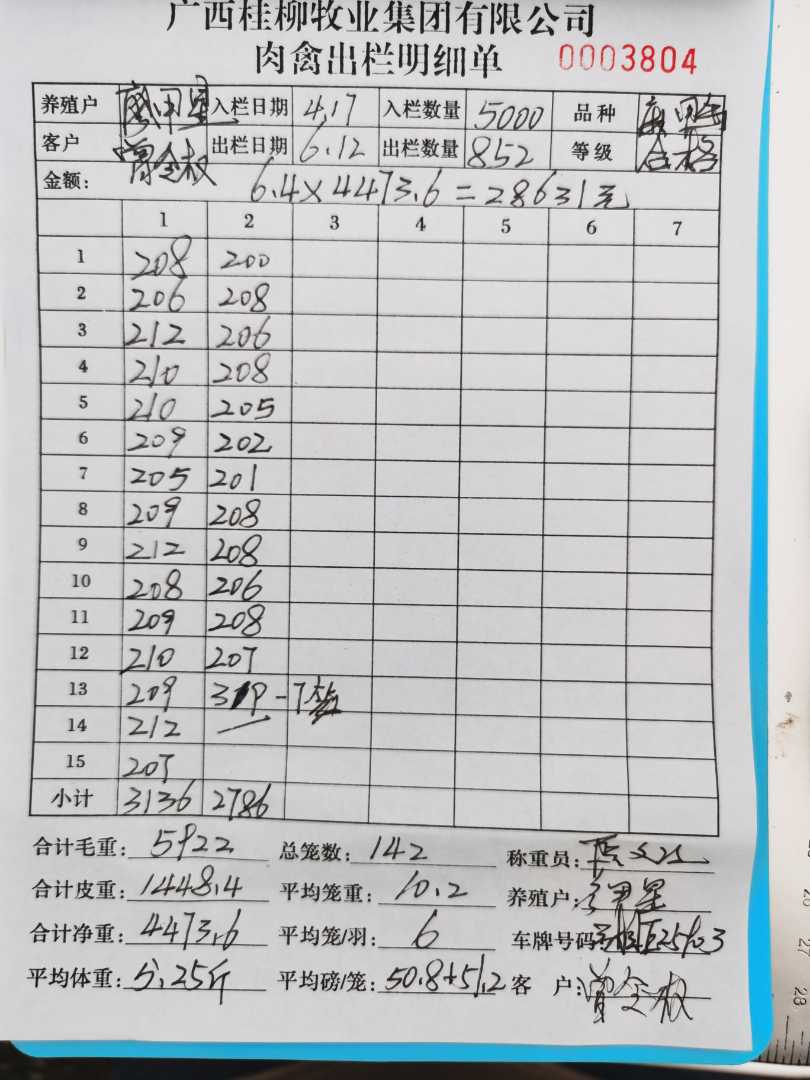 广西桂柳牧业集团有限公司
肉禽出栏明细单 0003804
养殖户 入栏日期 4.17 入栏数量 5000 品种
客户 曾全权 出栏日期 6.12 出栏数量 852 等级 合格
金额: 6.4×4473.6=28631元
1 2 3 4 5 6 7
1 208 200
2 206 208
3 212 206
4 210 208
5 210 205
6 209 202
7 205 201
8 209 208
9 212 208
10 208 206
11 209 208
12 210 207
13 209 319-7笼
14 212
15 207
小计 3136 2786
合计毛重: 5922 总笼数: 142 称重员:
合计皮重: 1448.4 平均笼重: 10.2 养殖户:
合计净重: 4473.6 平均笼/羽: 6 车牌号码:
平均体重: 5.25斤 平均磅/笼: 50.8+51.2 客 户: 曾全权